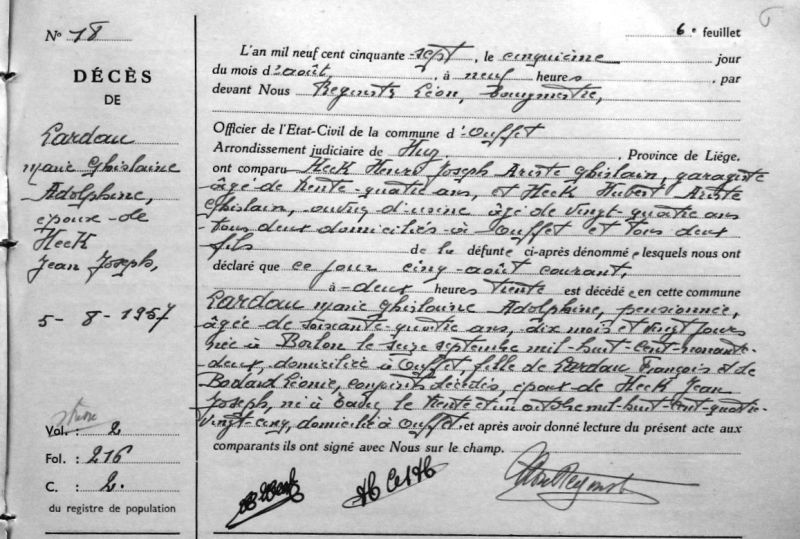 6
N° 18
DÉCÈS
DE
Lardau
Marie Ghislaine
Adolphine,
épouse de
Heck
Jean Joseph,
5 - 8 - 1957
Vol. : 2
Fol. : 216
C. : 2.
du registre de population
6e feuillet
L'an mil neuf cent cinquante-sept, le cinquième jour
du mois d'août, à neuf heures, par
devant Nous Léon, bourgmestre,
Officier de l'Etat-Civil de la commune d'Ouffet
Arrondissement judiciaire de Huy, Province de Liége.
ont comparu Heck Henri Joseph Ariste Ghislain, garagiste
âgé de trente-quatre ans, et Heck Hubert Ariste
Ghislain, ouvrier d'usine âgé de vingt-quatre ans
tous deux domiciliés à Ouffet et tous deux
fils de la défunte ci-après dénommée lesquels nous ont
déclaré que ce jour cinq août courant,
à deux heures trente est décédée en cette commune
Lardau Marie Ghislaine Adolphine, pensionnée,
âgée de soixante-quatre ans, dix mois et vingt jours
née à Borlon le seize septembre mil huit cent nonante-
deux, domiciliée à Ouffet, fille de Lardau François et de
Bodard Léonie, conjoints décédés, épouse de Heck Jean
Joseph, né à le trente et un octobre mil huit cent quatre-
vingt-cinq, domicilié à Ouffet, et après avoir donné lecture du présent acte aux
comparants ils ont signé avec Nous sur le champ.